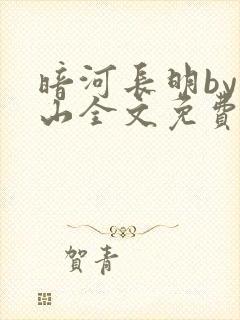 暗河長明by
山全文免費
賀青